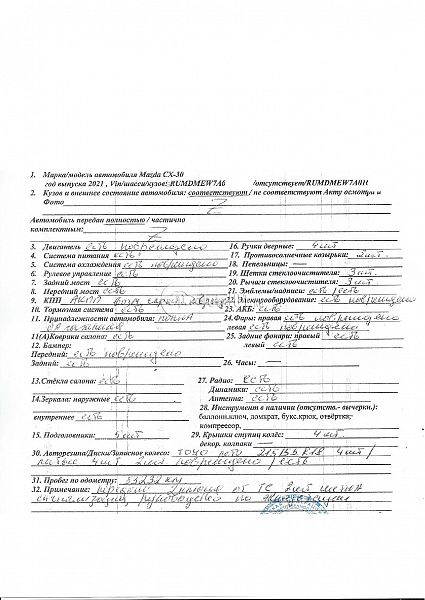 1. Марка/модель автомобиля Mazda CX-30
год выпуска 2021 , Vin/шасси/кузов: RUMDMEW7A6 /отсутствует/RUMDMEW7A0H
2. Кузов и внешнее состояние автомобиля: соответствуют / не соответствуют Акту осмотра и
Фото
Автомобиль передан полностью / частично
комплектным:
3. Двигатель есть повреждено
4. Система питания есть
5. Система охлаждения есть повреждено
6. Рулевое управление есть
7. Задний мост есть
8. Передний мост есть
9. КПП АКПП
10. Тормозная система есть
11. Принадлежности автомобиля:
11(А)Коврики салона: есть
12. Бампер:
Передний: есть повреждено
Задний: есть
13.Стёкла салона: есть
14.Зеркала: наружные есть
внутреннее есть
15. Подголовники: 5 шт
16. Ручки дверные: 4 шт
17. Противосолнечные козырьки: 2 шт.
18. Пепельницы: —
19. Щетки стеклоочистителя: 3 шт.
20. Рычаги стеклоочистителя: 3 шт
21. Эмблемы/надписи: есть / есть
22. Электрооборудование: есть повреждено
23. АКБ: есть
24.Фары: правая есть повреждено
левая есть повреждено
25. Задние фонари: правый есть
левый есть
26. Часы: —
27. Радио: есть
Динамики: есть
Антенна: есть
28. Инструмент в наличии (отсутств.- вычеркн.):
баллонн.ключ, домкрат, букс.крюк, отвёртка,
компрессор,
29. Крышки ступиц колёс: 4 шт.
декор. колпаки —
30. Авторезина/Диски/Запасное колесо: TOYO лето 215 55 R18 4 шт /
литые 4 шт. 2 шт повреждено / есть
31. Пробег по одометру: 33232 км
32. Примечание: от ТС 2 шт
сигнализация